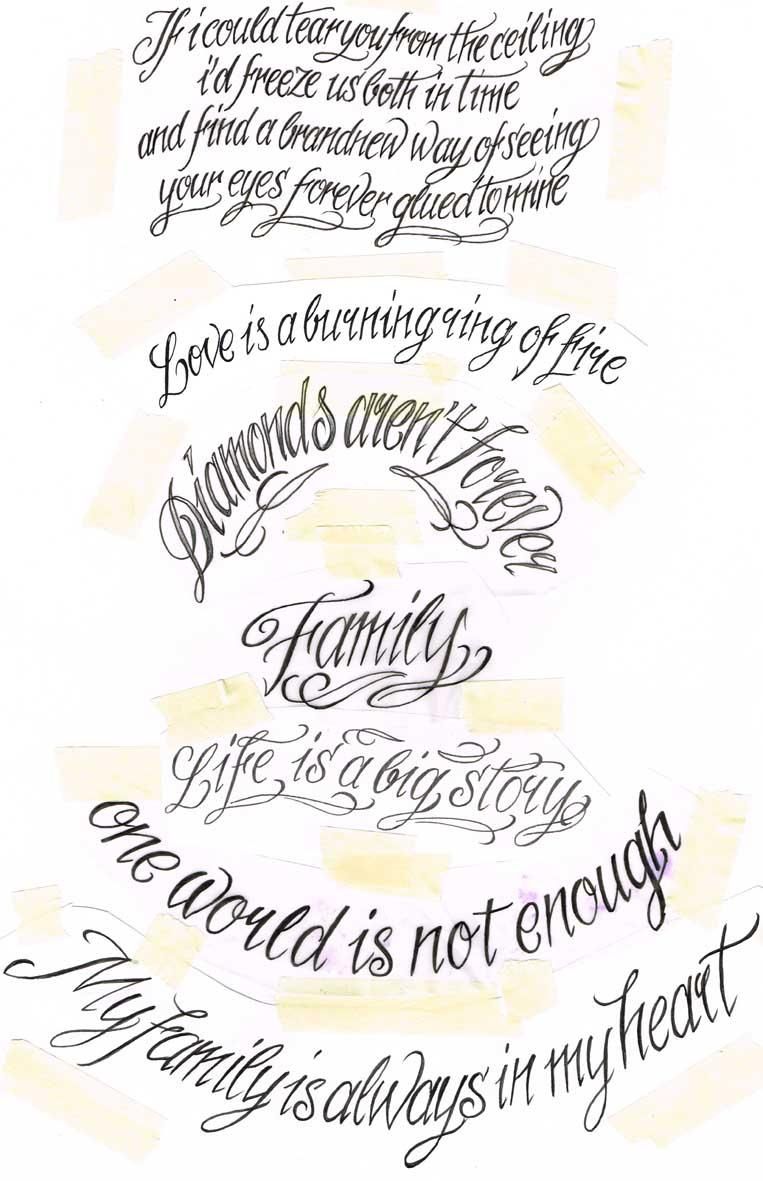 If i could tear you from the ceiling
i'd freeze us both in time
and find a brandnew way of seeing
your eyes forever glued to mine
Love is a burning ring of fire
Diamonds aren't forever
Family
Life is a big story
one world is not enough
My family is always in my heart